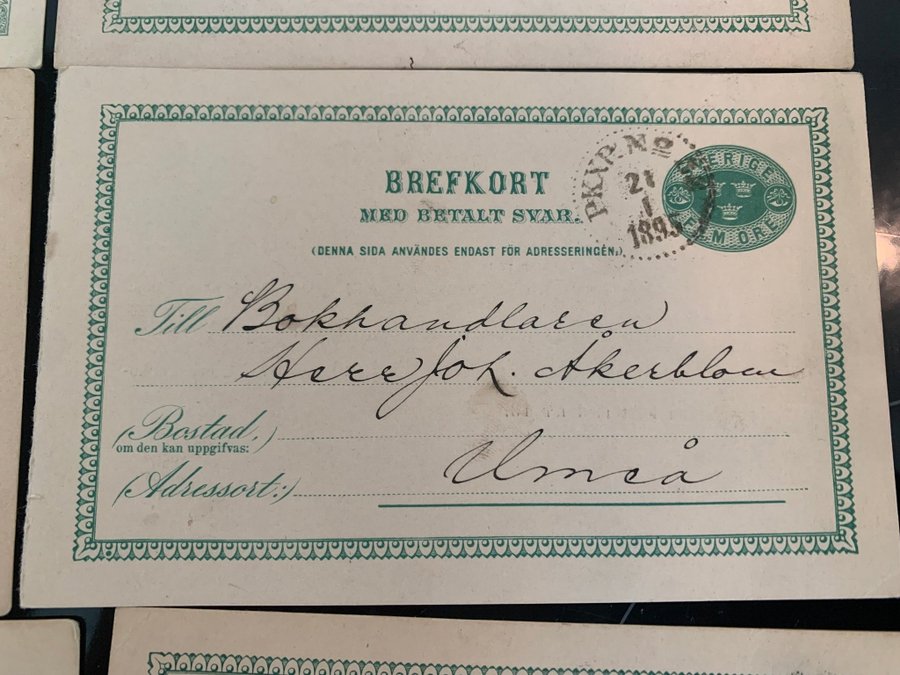 BREFKORT
MED BETALT SVAR.
(DENNA SIDA ANVÄNDES ENDAST FÖR ADRESSERINGEN.)
PKXP. No
21
1
1895
SVERIGE
FEM ÖRE
Till Bokhandlaren
Herr Joh. Åkerblom
(Bostad,)
om den kan uppgifvas:
(Adressort:) Umeå